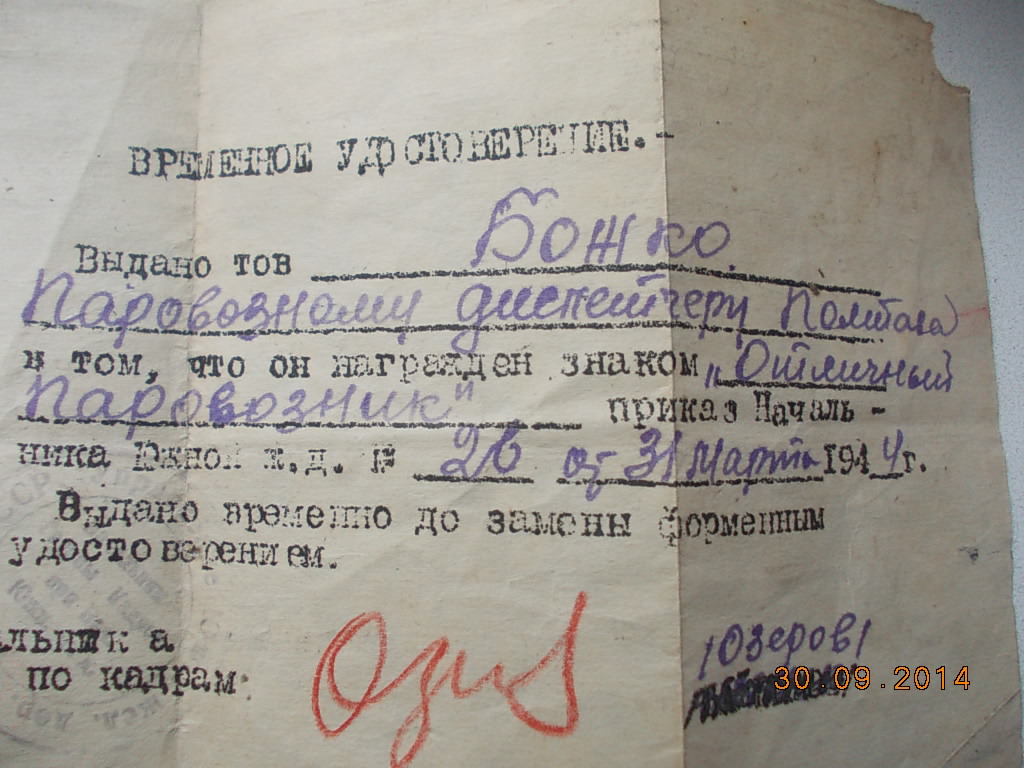 ВРЕМЕННОЕ УДОСТОВЕРЕНИЕ.-
Выдано тов Божко.
Паровозному диспетчеру
в том, что он награжден знаком „Отличный
Паровозник" приказ Началь-
ника Южной ж.д. № 26 от 31 марта 1944г.
Выдано временно до замены форменным
удостоверением.
альника
по кадрам:
/Озеров/
30.09.2014